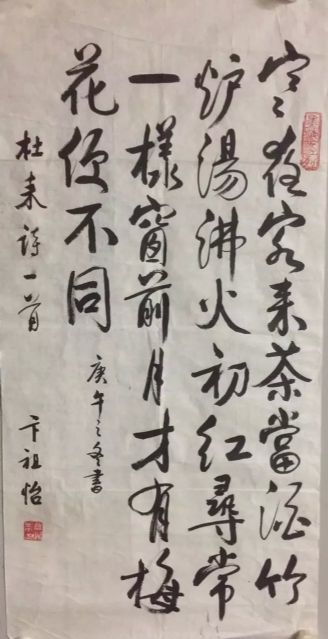 寒夜客来茶當酒竹
炉湯沸火初红尋常
一樣窗前月才有梅
花便不同
庚午之冬書
杜耒詩一首
卞祖怡